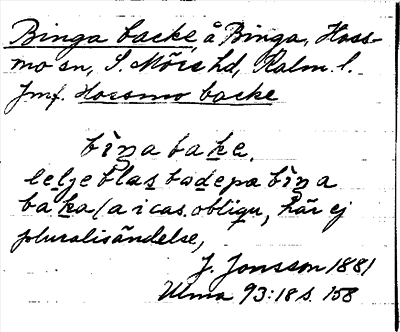 Binga backe, å Binga, Hoss-
mo sn, S. Möre hd, Kalm. l.
Jmf. Hossmo backe
bìŋa bake,
lelje blas badepa bìŋa
baka (a i cas. obliqu, här ej
pluralisändelse,
J. Jonsson 1881
Ulma 93:18 s. 158